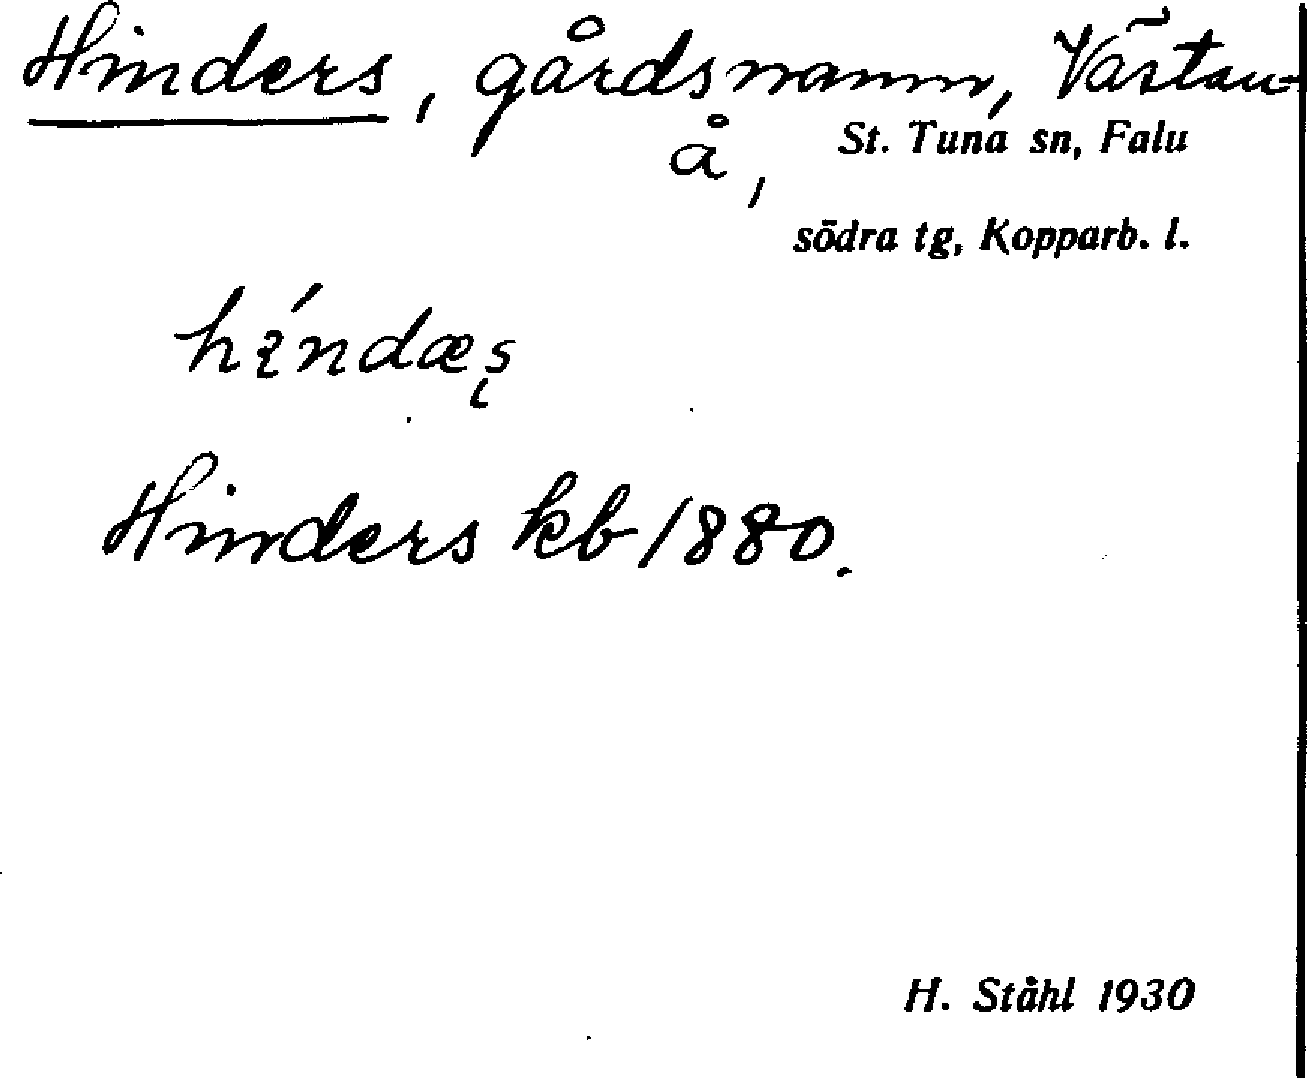 Hinders, gårdsnamn, Västan-
å, St. Tuna sn, Falu
södra tg, Kopparb. l.
hı́ndæʂ
Hinders kb 1880.
H. Ståhl 1930